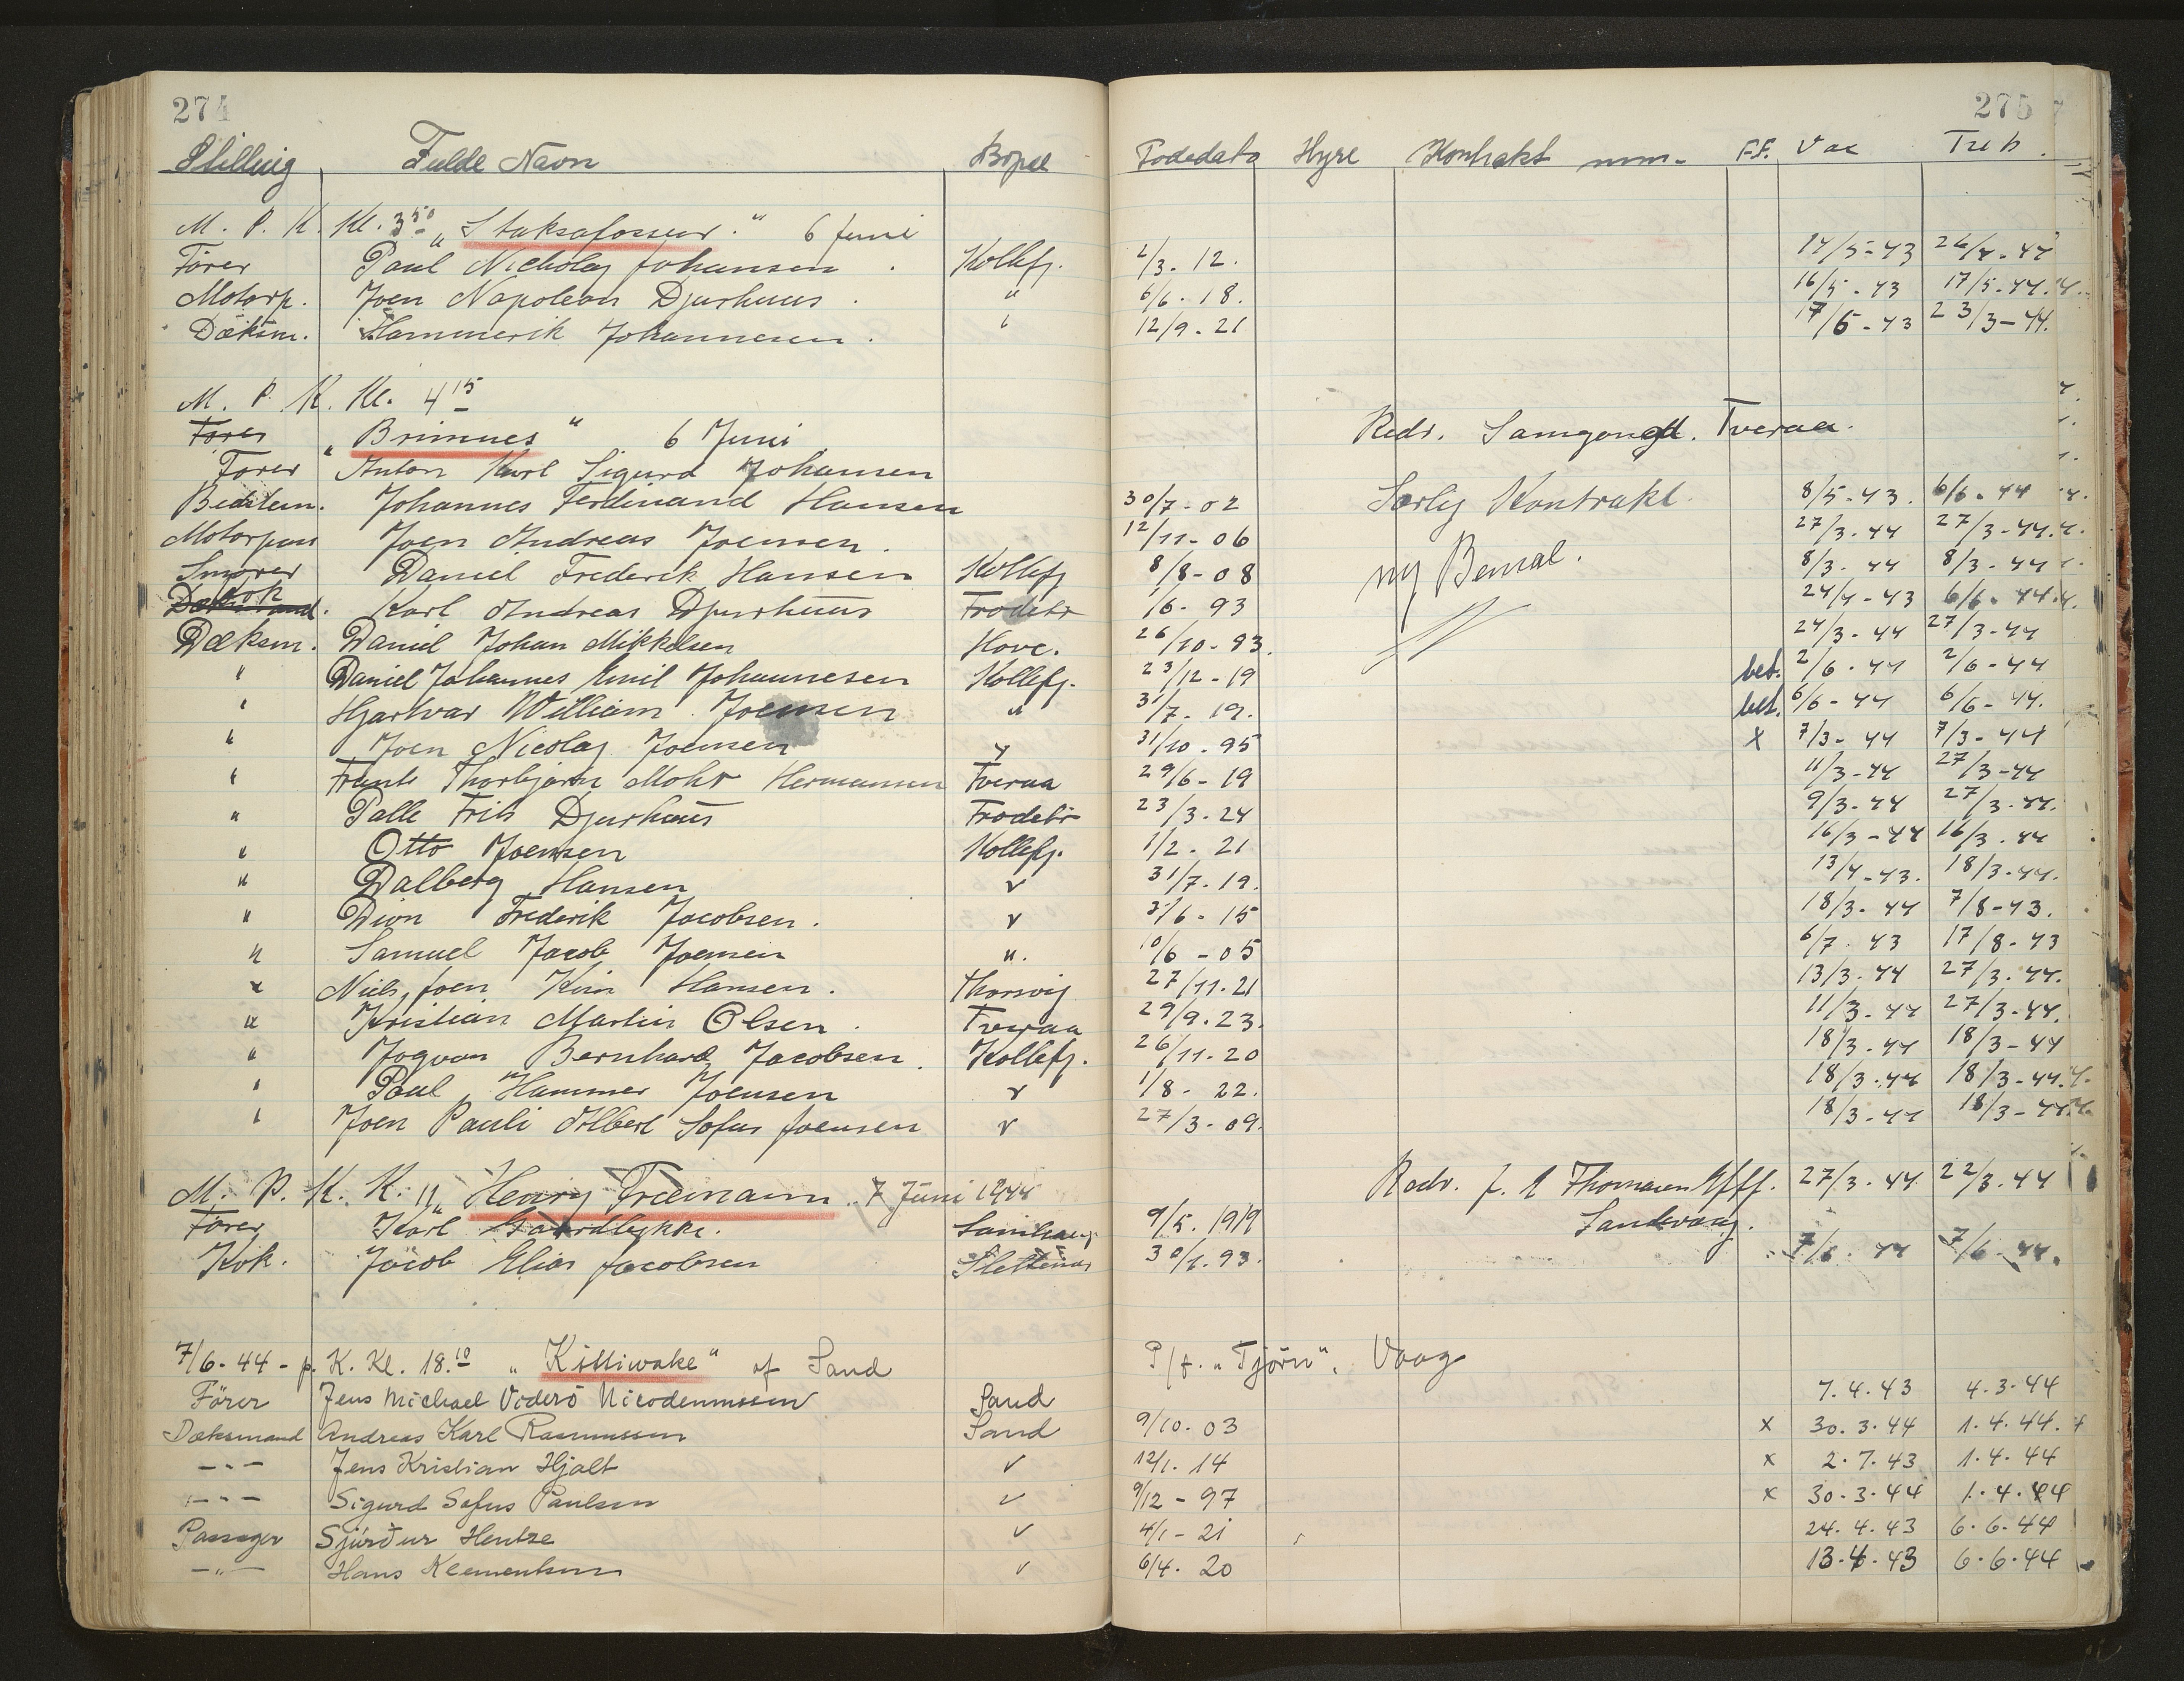 274 275
Stilling Fulde Navn Bopæl Födedato Hyre Kontrakt F.F. Vac Tub.
M. P. K. Kl. 3 50 " " 6 Juni
Förer Paul Nicholaj Johansen . Kollefj. 2/3. 12. 14/5-43
Motorp. Joen Napoleon Djurhuus . " 6/6. 18. 16/5. 43 17/5-44.
Dæksm. Hammerik Johannesen . " 12/9. 21 17/5-43 23/3-44.
M. P. K. Kl. 4 15
Förer "Brimnes" 6 Juni Redr. Tveraa.
Förer Anton Karl Sigurd Johansen
Bedstem. Johannes Ferdinand Hansen 30/7-02 Særlig Kontrakt. 8/5-43. 6/6. 44
Motorpas Joen Andreas Joensen . 12/11-06 27/3.44 27/3-44.
Smører Daniel Frederik Hansen Kollefj 8/8-08 ny 8/3. 44 8/3-44
Kok Karl Andreas Djurhuus Frodebö 1/6. 93 24/4-43 6/6. 44
Dæksm. Daniel Johan Mikkelsen Hove. 26/10-93. 24/3-44 27/3-44
" Daniel Johannes Emil Johannesen Kollefj. 23/12-19 bet. 2/6. 44 2/6-44
" Hjartvar William Joensen " 31/7. 19. bet. 6/6-44 6/6-44.
" Joen Nicolaj Joensen " 31/10. 95 x 7/3-44 7/3-44
" Thorbjørn Mohr Hermansen Tveraa 29/6-19 11/3-44 27/3-44
" Palle Frits Djurhuus Frodebö 23/3-24 9/3-44 27/3.44.
" Otto Joensen Kollefj. 1/2. 21 16/3-44 16/3.44
" Dalberg Hansen " 31/7. 19. 13/4-43. 18/3-44.
" Dion Frederik Jacobsen . " /6-15 18/3-44 7/8-43.
" Samuel Jacob Joensen ". 10/6-05 6/7. 43 17/8-43
" Niels Joen Hansen . Thorsvig 27/11-21 13/3.44 27/3.44.
" Kristian Martin Olsen . Tveraa 29/9.23. 11/3-44 27/3-44.
" Jogvan Bernhard Jacobsen . Kollefj. 26/11-20 18/3-44 18/3-44
" Paul Hammer Joensen " 1/8-22. 18/3.44 18/3-44.
" Joen Pauli Albert Sofus Joensen " 27/3-09. 18/3-44 18/3-44.
M. P. K. K. 11 "Henry Freemann . 7 Juni 1944 Redr. J. Thomasen 27/3.44 22/3.44
Förer Karl . 9/5. 1919 Sandevaag.
Kok. Jacob Elias Jacobsen 30/ .93. 7/6. 44 7/6-44.
7/6-44 - p. K. Kl. 18.10 "Kittiwake" af Sand P/f. "Tjörn". Vaag
Förer Jens Michael Viderö Nicodemussen Sand 7.4.43 4.3.44
Dæksmand Andreas Karl Rasmussen Sand 9/10.03 x 30.3.44 1.4.44.
-"- Jens Kristian Hjalt " 12/1.14 x 2.7.43 1.4.44
-"- Sigurd Sofus Paulsen " 9/12-97 x 30.3.44 1.4.44
Passager Sjúrður Hentze " 4/1-21 24.4.43 6.6.44
-"- Hans Klementsen " 6/4. 20 13.4.43 6.6.44